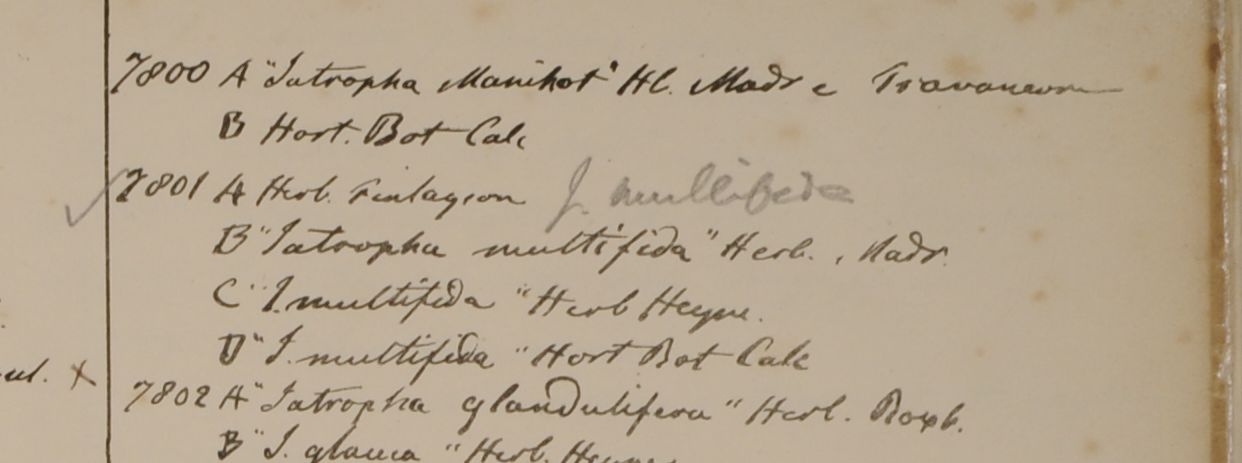 7800 A "Jatropha Manihot" Hb. Madr e Travancore
B Hort. Bot Calc
7801 A Herb. Finlayson J. multifida
B "Jatropha multifida" Herb. Madr.
C "J. multifida" Herb Heyne.
D "J. multifida" Hort Bot Calc
ul. x
7802 A "Jatropha glandulifera" Herb. Roxb.
B "J. glauca" Herb. Heyne